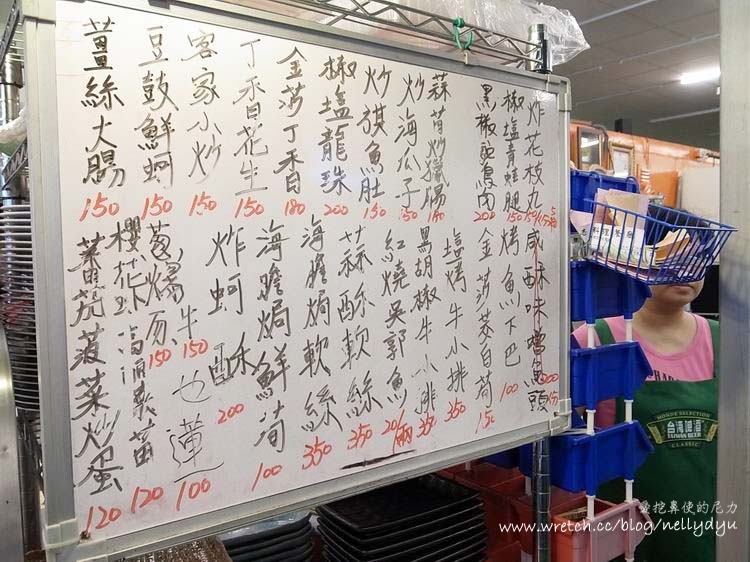 炸花枝丸 150
椒塩青蛙腿 150
黑椒鴕鳥肉 200
蒜苗炒臘腸 180
炒海瓜子 150
炒旗魚肚 150
椒塩龍珠 200
金莎丁香 180
丁香花生 150
客家小炒 150
豆鼓鮮蚵 150
薑絲大腸 150
咸酥味噌魚頭
烤魚下巴 100
金莎茭白筍 150
塩烤牛小排 350
黑胡椒牛小排 350
紅燒吳郭魚 20/兩
蒜酥軟絲 350
海膽焗軟絲 350
海膽焗鮮筍 100
炸蚵酥 200
蔥爆牛 150
肉 150
水蓮 100
櫻花蝦高涌菜苗 120
蕃茄菠菜炒蛋 120
MONDE SELECTION
台灣啤酒
TAIWAN BEER
CLASSIC
愛挖鼻使的尼力
www.wretch.cc/blog/nellydyu